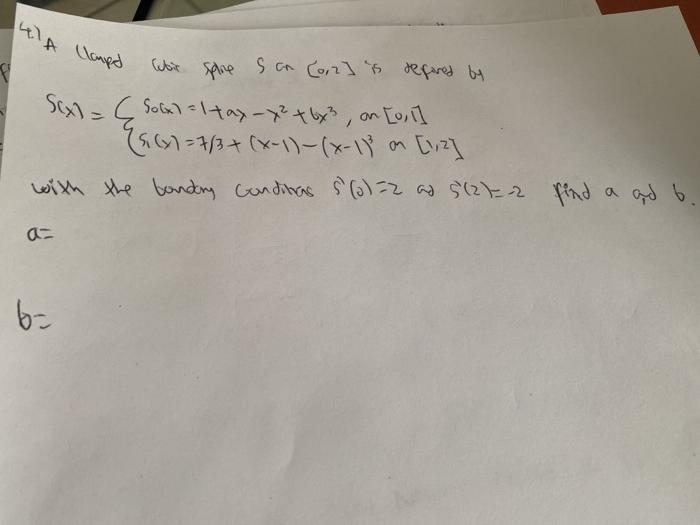 4.) A Clamped cubic spline S on [0,2] is defined by
S(x) = { S₀(x) = 1+ax-x²+bx³, on [0,1]
{ S₁(x) = 7/3 + (x-1) - (x-1)³ on [1,2]
with the boundary conditions S'(0)=2 and S'(2)=-2 find a and b.
a=
b=